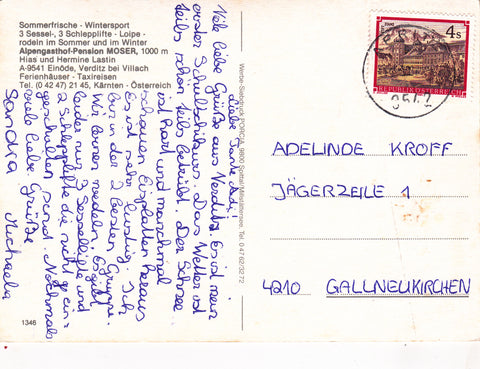 Sommerfrische - Wintersport
3 Sessel-, 3 Schlepplifte - Loipe -
rodeln im Sommer und im Winter
Alpengasthof-Pension MOSER, 1000 m
Hias und Hermine Lastin
A-9541 Einöde, Verditz bei Villach
Ferienhäuser - Taxireisen
Tel. (0 42 47) 21 45, Kärnten - Österreich
Liebe Tante
Viele liebe Grüße aus Verditz. Es ist mein
erster Schulschikurs. Das Wetter ist
teils schön teils bewölkt. Der Schnee
ist hart und manchmal
schauen Eisplatten heraus
Es ist sehr lustig. Ich
bin in der 2 besten Gruppe.
Wir lernen wedeln. Es gibt
leider nur 3 Sessellifte und
2 Schlepplifte die nicht ein-
geschalten sind. Nochmals
viele liebe Grüße
Sandra Michaela
1346
Werbe-Siebdruck PORCIA, 9800 Spittal/Millstättersee, Tel. 0 47 62/32 72
4s
REPUBLIK ÖSTERREICH
ADELINDE KROFF
JÄGERZEILE 1
4210 GALLNEUKIRCHEN